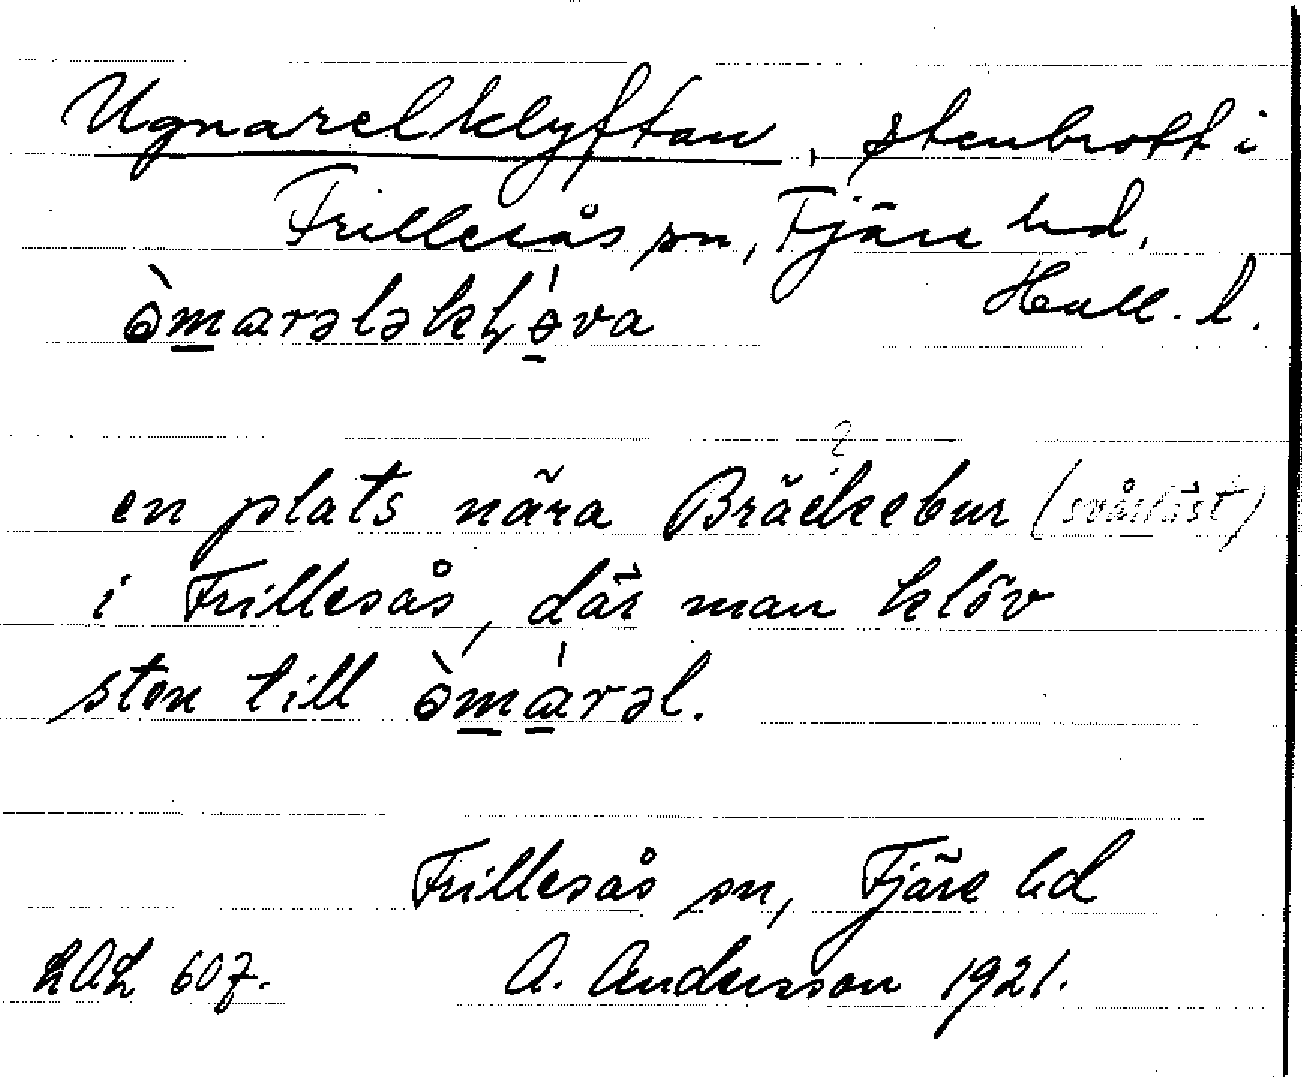 Ugnarelklyftan, stenbrott i
Frillesås sn, Fjäre hd,
Hall. l.
òmarələkl̥ǿva
?
en plats nära Bräckebur (svårläst)
i Frillesås, där man klöv
sten till òmárəl.
Frillesås sn, Fjäre hd
LAL 607. A. Andersson 1921.